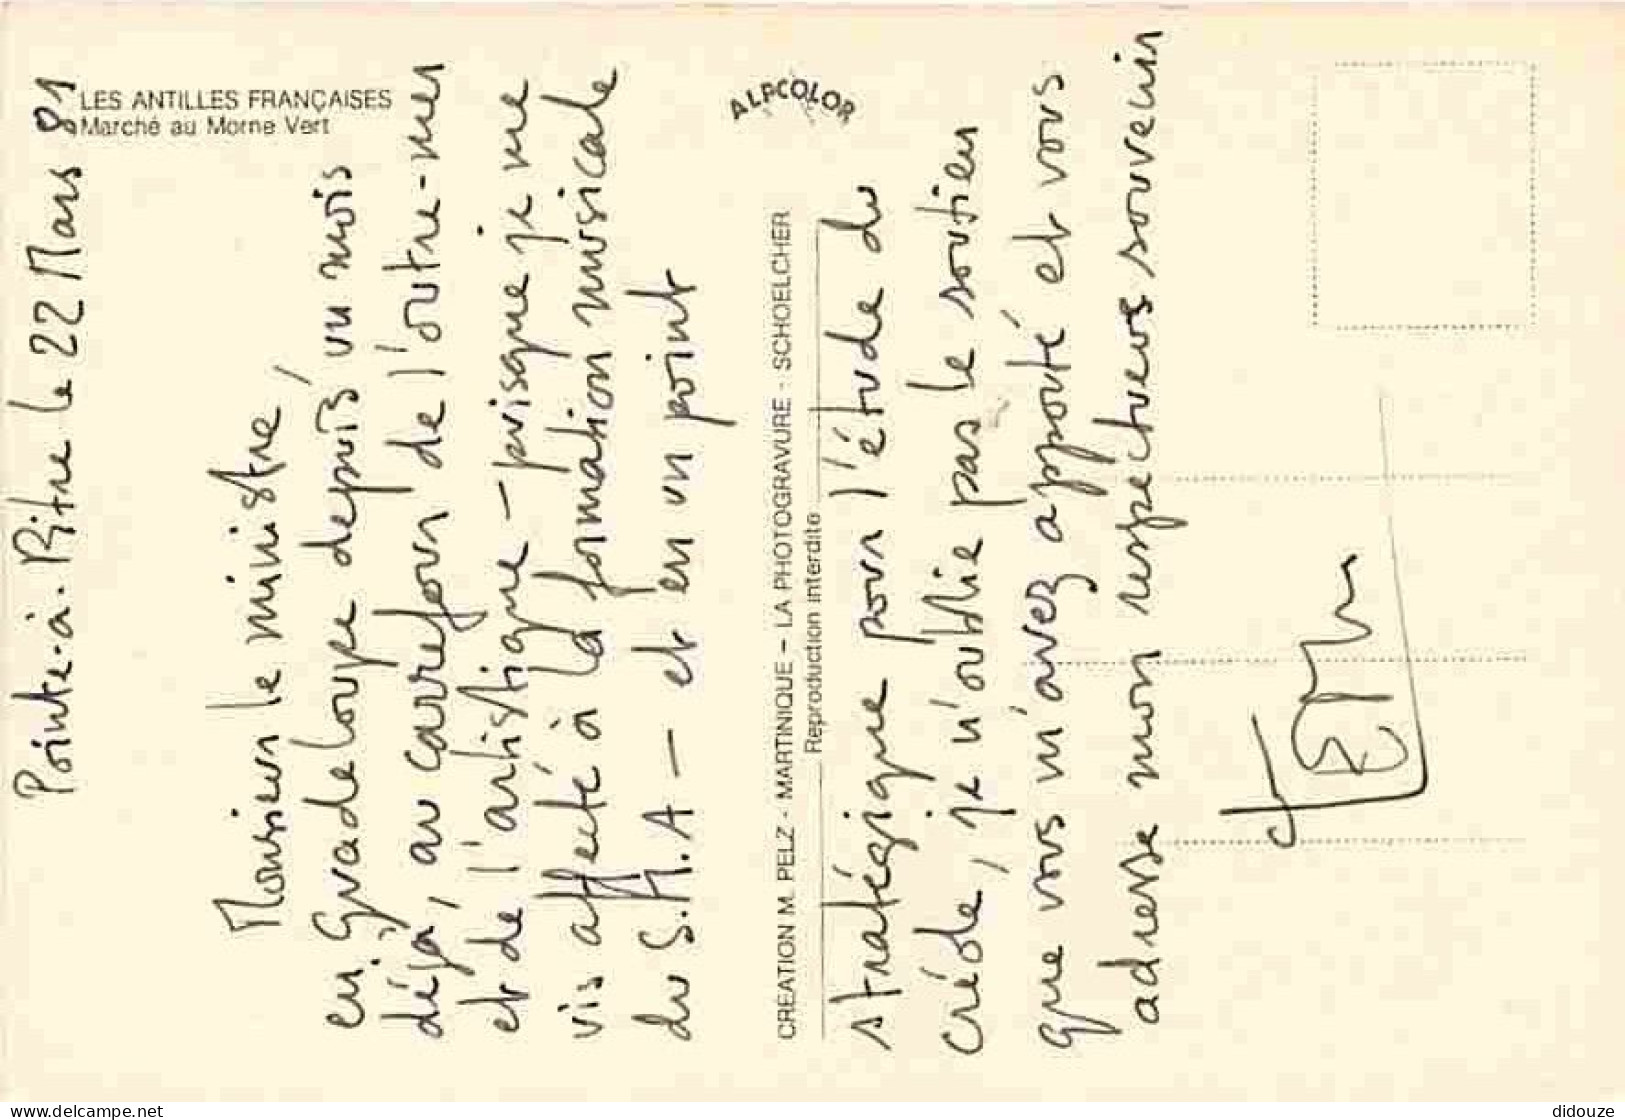 LES ANTILLES FRANÇAISES
Marché au Morne Vert
ALPCOLOR
Pointe-à-Pitre le 22 Mars 81
Monsieur le ministre,
en Guadeloupe depuis un mois
déjà, au carrefour de l'outre-mer
et de l'artistique – puisque je me
vis affecté à la formation musicale
du S.M.A – et en un point
CREATION M. PELZ - MARTINIQUE – LA PHOTOGRAVURE - SCHOELCHER
Reproduction interdite
stratégique pour l'étude du
créole, je n'oublie pas le soutien
que vous m'avez apporté et vous
adresse mon respectueux souvenir
delcampe.net
didouze